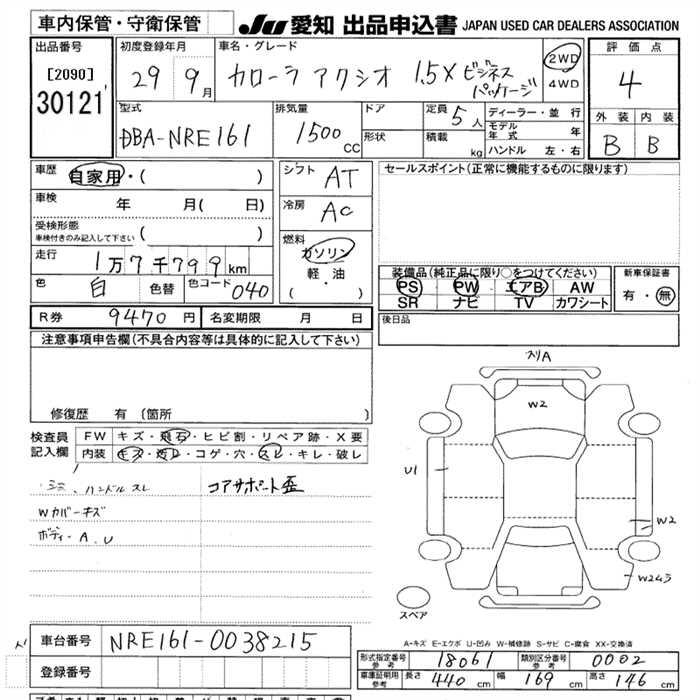 車内保管・守衛保管
JU 愛知 出品申込書 JAPAN USED CAR DEALERS ASSOCIATION
出品番号
[2090]
30121
初度登録年月
29 9月
車名・グレード
カローラ アクシオ 1.5X ビジネス
パッケージ
2WD
4WD
評価点
4
外装 内装
B B
型式
DBA-NRE161
排気量
1500 CC
ドア
形状
定員 5人
積載 kg
ディーラー・並行
モデル年式 年
ハンドル 左・右
車歴
自家用・( )
車検 年 月( 日)
受検形態
車検付きのみ記入して下さい ( )
走行 1万7千799km
色 白 色替 色コード 040
シフト AT
冷房 AC
燃料
ガソリン
軽・油
( ・ )
セールスポイント(正常に機能するものに限ります)
装備品(純正品に限り○をつけてください)
PS PW エアB AW
SR ナビ TV カワシート
新車保証書
有・無
後日品
R券 9470円 名変期限 月 日
注意事項申告欄(不具合内容等は具体的に記入して下さい)
修復歴 有 (箇所 )
検査員
記入欄
FW キズ・飛石・ヒビ割・リペア跡・X要
内装 キズ・汚レ・コゲ・穴・スレ・キレ・破レ
ハンドルスレ
コアサポート歪
Wカバーキズ
ボディ・A.U
スリA
W2
U1
W2
W2
スペア
A-キズ E-エクボ U-凹み W-補修跡 S-サビ C-腐食 XX-交換済
車台番号 NRE161-0038215
登録番号
形式指定番号
参考
18061
類別区分番号
参考
0002
車庫証明用
参考
長さ 440cm 幅 169cm 高さ 146cm